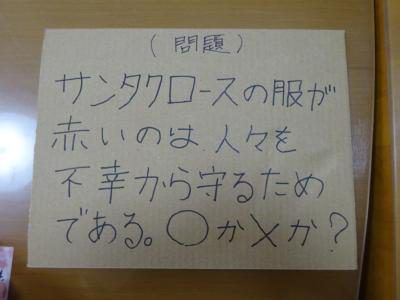 (問題)
サンタクロースの服が
赤いのは、人々を
不幸から守るため
である。〇か×か?